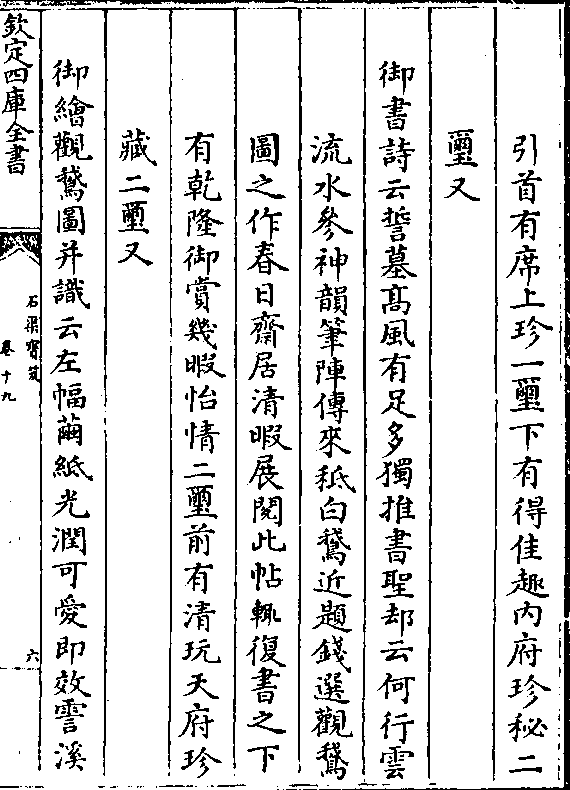 引首有席上珍一璽下有得佳趣内府珍秘二
璽又
御書詩云誓墓髙風有足多獨推書聖却云何行雲
流水參神韻筆陣傳來秪白鵞近題錢選觀鵞
圖之作春日齋居清暇展閱此帖輒復書之下
有乾隆御賞幾暇怡情二璽前有清玩天府珍
藏二璽又
御繪觀鵞圖并識云左幅繭紙光潤可愛即效霅溪
欽定四庫全書
石渠寳笈
卷十九
六